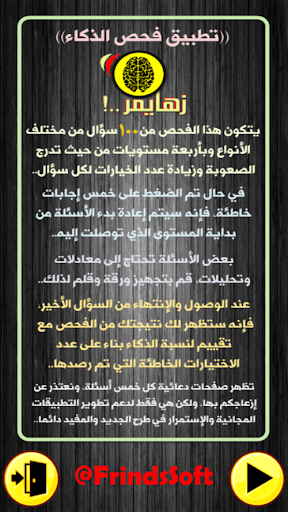 ((تطبيق فحص الذكاء))
زهايمر ..!
يتكون هذا الفحص من ١٠٠ سؤال من مختلف
الأنواع وبأربعة مستويات من حيث تدرج
الصعوبة وزيادة عدد الخيارات لكل سؤال..
في حال تم الضغط على خمس إجابات
خاطئة، فإنه سيتم إعادة بدء الأسئلة من
بداية المستوى الذي توصلت إليه..
بعض الأسئلة تحتاج إلى معادلات
وتحليلات، قم بتجهيز ورقة وقلم لذلك..
عند الوصول والإنتهاء من السؤال الأخير،
فإنه ستظهر لك نتيجتك من الفحص مع
تقييم لنسبة الذكاء بناء على عدد
الاختيارات الخاطئة التي تم رصدها..
تظهر صفحات دعائية كل خمس أسئلة، ونعتذر عن
إزعاجكم بها، ولكن هي فقط لدعم تطوير التطبيقات
المجانية والإستمرار في طرح الجديد والمفيد دائما..
@FrindsSoft